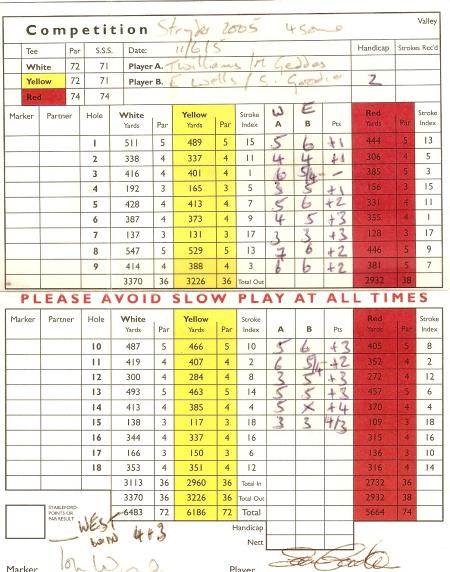 Competition Stryder 2005 4 some Valley
Tee Par S.S.S. Date: 11/6/5 Handicap Strokes Rec'd
White 72 71 Player A. T Williams / M Geddes
Yellow 72 71 Player B. E Wells / S. 2
Red 74 74
Marker Partner Hole White Yards Par Yellow Yards Par Stroke Index W A E B Pts Red Yards Par Stroke Index
1 511 5 489 5 15 5 6 +1 444 5 13
2 338 4 337 4 11 4 4 +1 306 4 5
3 416 4 401 4 1 6 5/4 - 385 5 3
4 192 3 165 3 5 3 5 +1 156 3 15
5 428 4 413 4 7 5 6 +2 331 4 11
6 387 4 373 4 9 4 5 +3 355 4 1
7 137 3 131 3 17 3 3 +3 128 3 17
8 547 5 529 5 13 7 6 +2 446 5 9
9 414 4 388 4 3 6 6 +2 381 5 7
3370 36 3226 36 Total Out 2932 38
PLEASE AVOID SLOW PLAY AT ALL TIMES
Marker Partner White Yards Par Yellow Yards Par Stroke Index A B Pts Red Yards Par Stroke Index
10 487 5 466 5 10 5 6 +3 405 5 8
11 419 4 407 4 2 6 5/4 +2 352 4 2
12 300 4 284 4 8 3 5 +3 272 4 12
13 493 5 463 5 14 5 5 +3 457 5 6
14 413 4 385 4 4 5 X +4 370 4 4
15 138 3 117 3 18 3 3 4/3 109 3 18
16 344 4 337 4 16 315 4 16
17 166 3 150 3 6 136 3 14
18 353 4 351 4 12 316 4 10
3113 36 2960 36 Total In 2732 36
3370 36 3226 36 Total Out 2932 38
6483 72 6186 72 Total 5664 74
STABLEFORD POINTS OR PAR RESULT
WEST WIN 4+3
Handicap
Nett
Marker Player